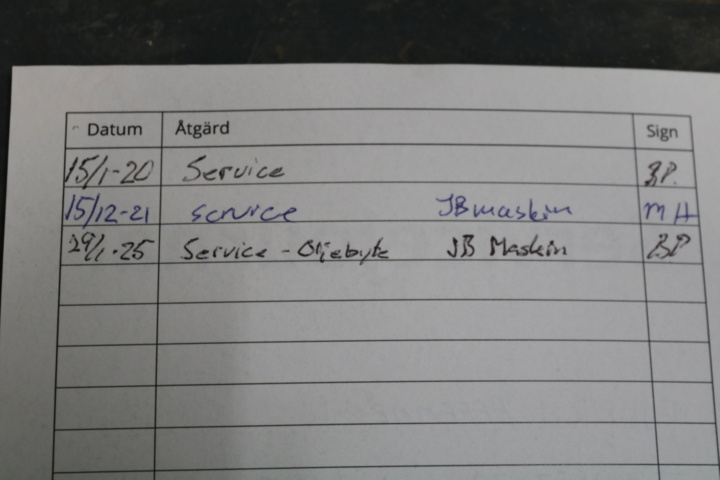 Datum Åtgärd Sign
15/1-20 Service BP.
15/12-21 service JB maskin MH
29/1-25 Service - Oljebyte JB Maskin BP